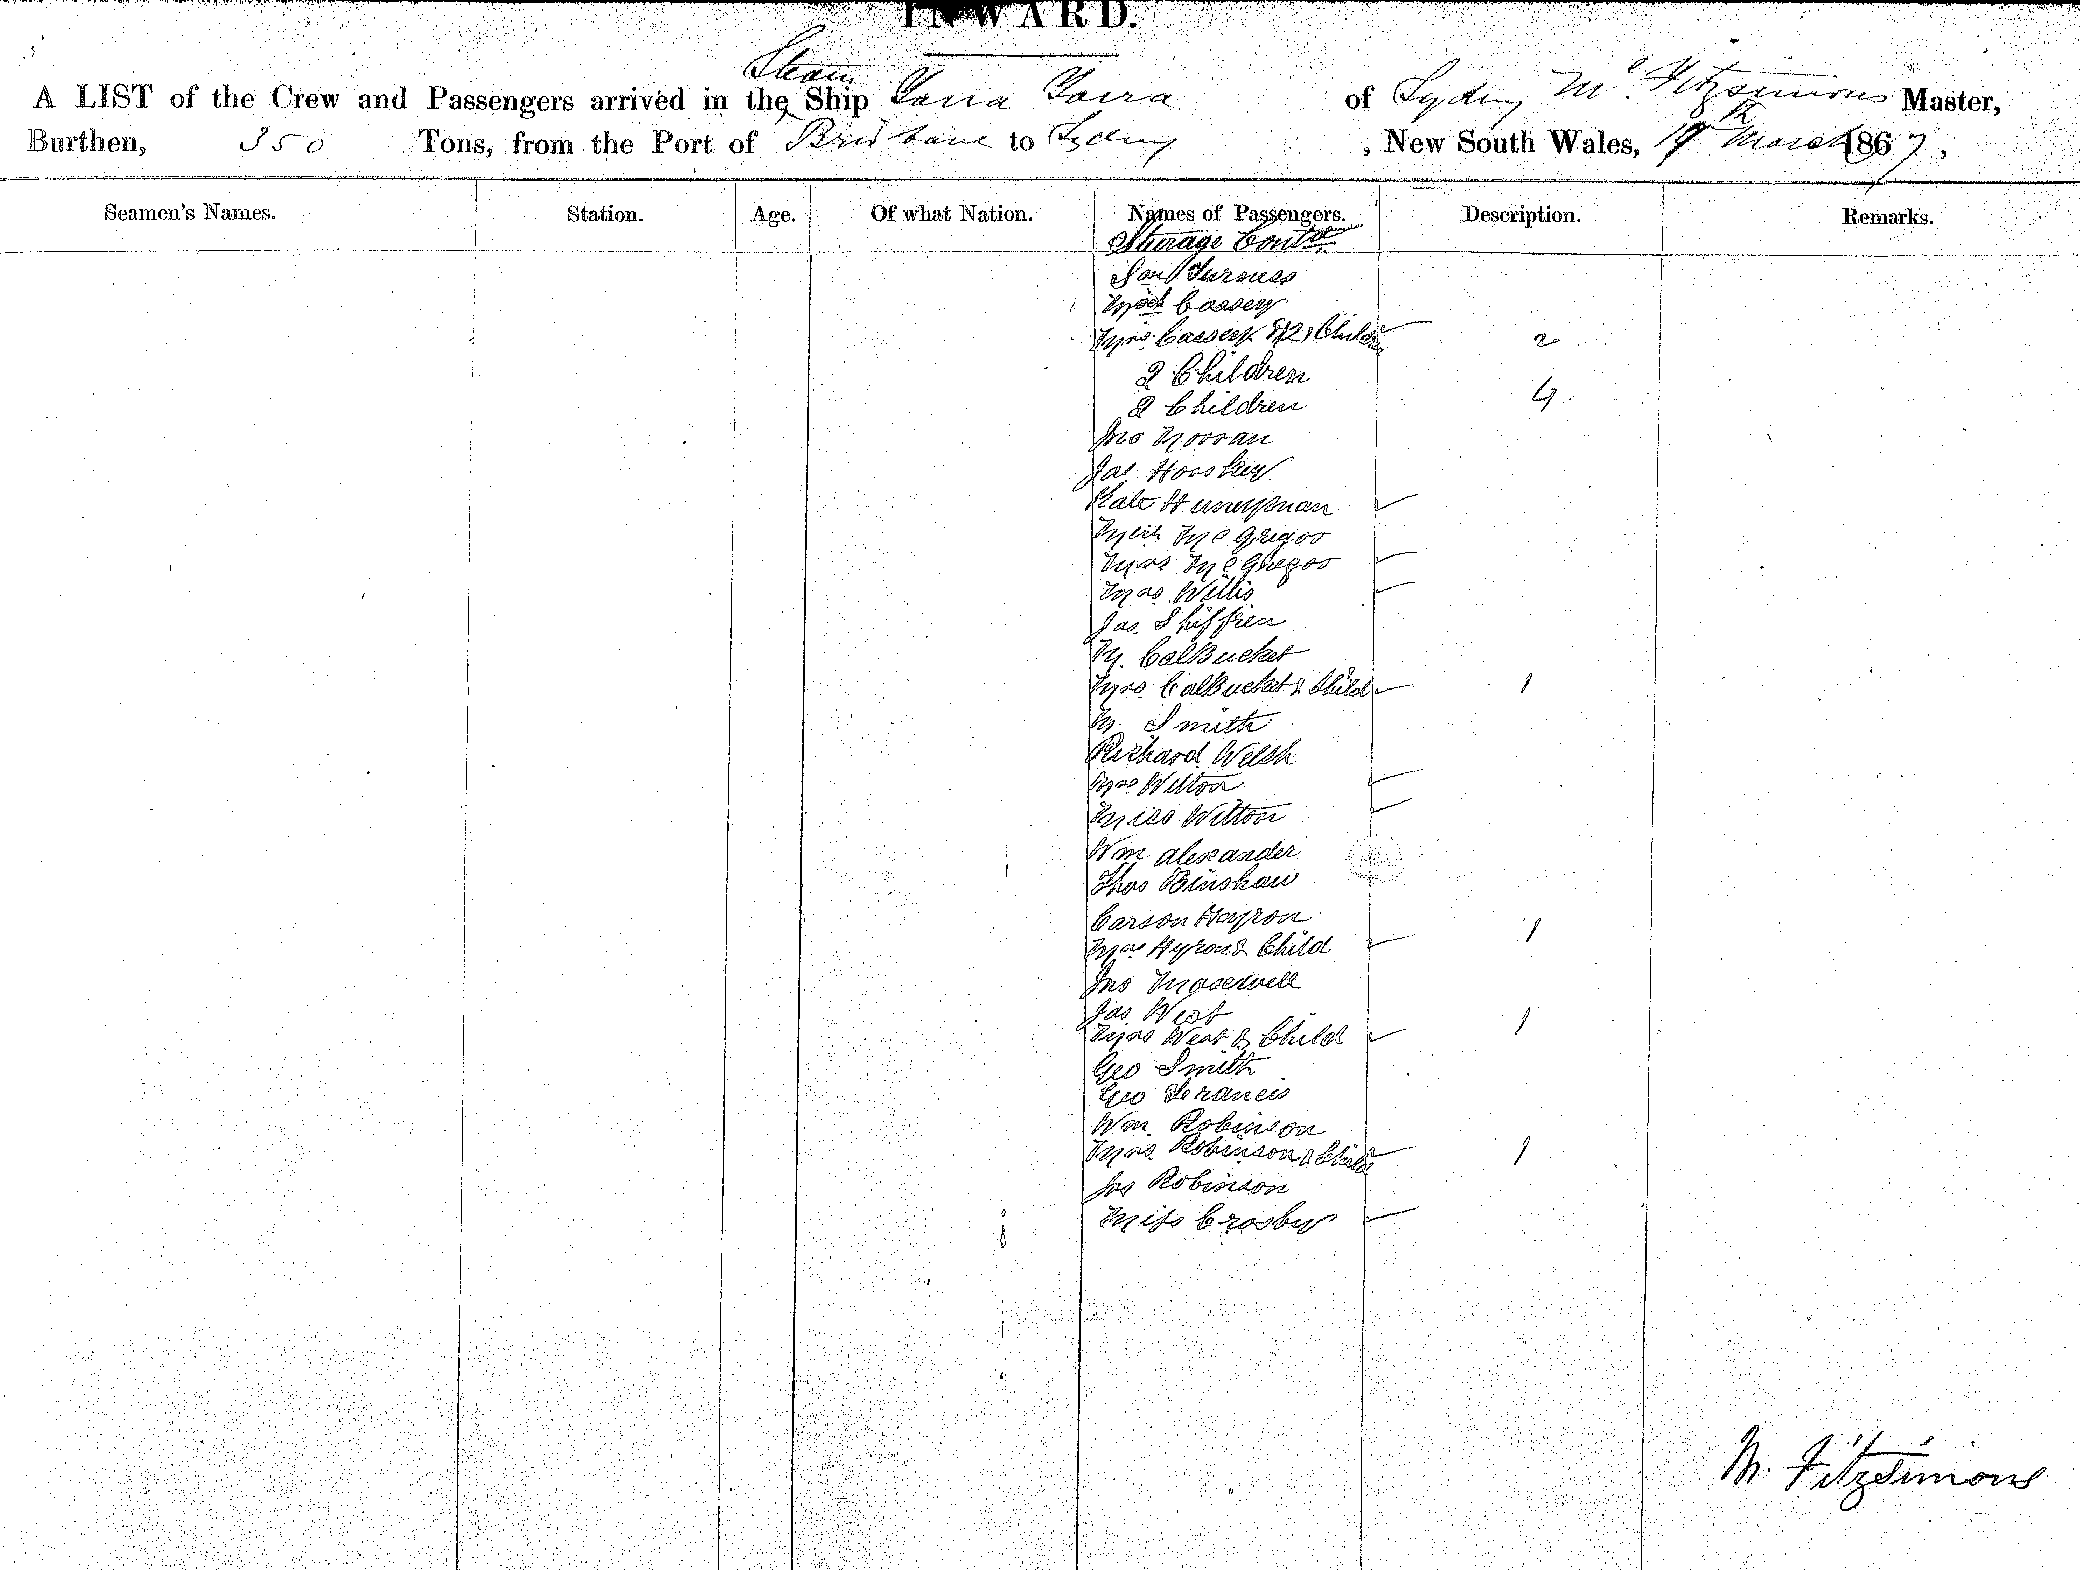 INWARD.
Steam
A LIST of the Crew and Passengers arrived in the Ship Yarra Yarra of Sydney Mc. Fitzsimons Master,
Burthen, 350 Tons, from the Port of Brisbane to Sydney, New South Wales, 19th March 1867,
Seamen's Names. Station. Age. Of what Nation. Names of Passengers. Description. Remarks.
Steerage Contd
Furness
Mich Cassey
Mrs Cassey & 2 Children 2
2 Children
2 Children 4
Jno Mooran
Jas
Kate
Mich McGregor
Mrs McGregor
Mrs Willis
Jas Shiffren
M. CalBucket
Mrs CalBucket & Child 1
M. Smith
Richard Welsh
Mrs Wilton
Miss Wilton
Wm alexander
Thos Binshaw
Carson Hayron
Mrs Hyron & Child 1
Jno Maxwell
Jas West
Mrs West & Child 1
Geo Smith
Geo Francis
Wm. Robinson
Mrs Robinson & Child 1
Jos Robinson
Miss Crosby
M. Fitzsimons